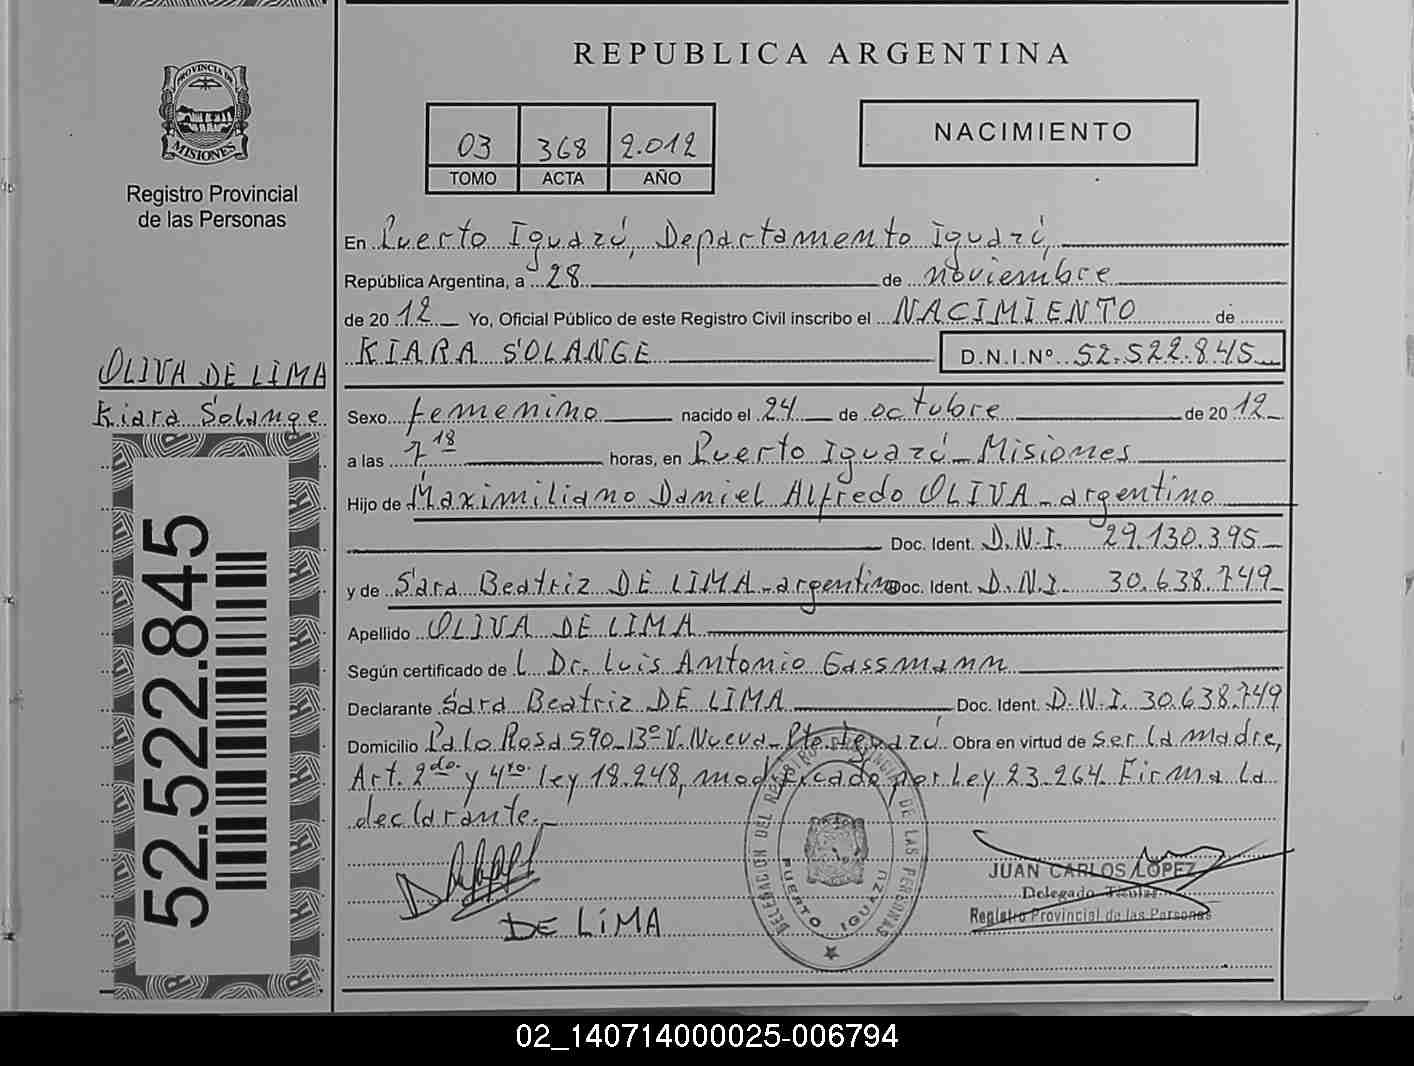 REPUBLICA ARGENTINA
PROVINCIA DE
MISIONES
Registro Provincial
de las Personas
03 368 2.012
TOMO ACTA AÑO
NACIMIENTO
En Puerto Iguazú, Departamento Iguazú,
República Argentina, a 28 de noviembre
de 2012 Yo, Oficial Público de este Registro Civil inscribo el NACIMIENTO de
KIARA SOLANGE D.N.I.Nº 52.522.845
OLIVA DE LIMA
Kiara Solange
52.522.845
Sexo femenino nacido el 24 de octubre de 2012
a las 7 18 horas, en Puerto Iguazú - Misiones
Hijo de Maximiliano Daniel Alfredo OLIVA - argentino
Doc. Ident. D.N.I. 29.130.395
y de Sara Beatriz DE LIMA - argentina Doc. Ident. D.N.I. 30.638.749
Apellido OLIVA DE LIMA
Según certificado de L Dr. Luis Antonio Gassmann
Declarante Sara Beatriz DE LIMA Doc. Ident. D.N.I. 30.638.749
Domicilio Palo Rosa 590 - 13º V. Nueva - Pto. Iguazú Obra en virtud de ser la madre,
Art. 2do. y 4to. Ley 18.248, modificado por Ley 23.264. Firma la
declarante.
DE LIMA
DELEGACION DEL REGISTRO PROVINCIAL DE LAS PERSONAS
PUERTO IGUAZU
JUAN CARLOS LOPEZ
Delegado Titular
Registro Provincial de las Personas
02_140714000025-006794